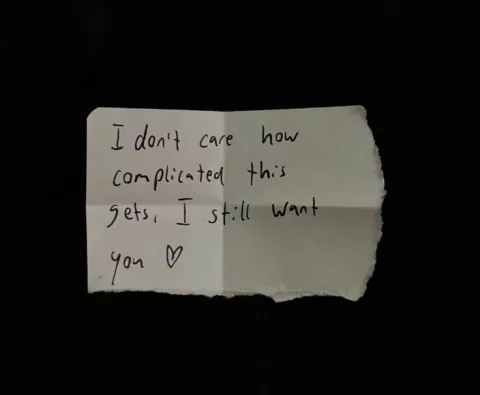 I don't care how
complicated this
gets, I still want
you ♡